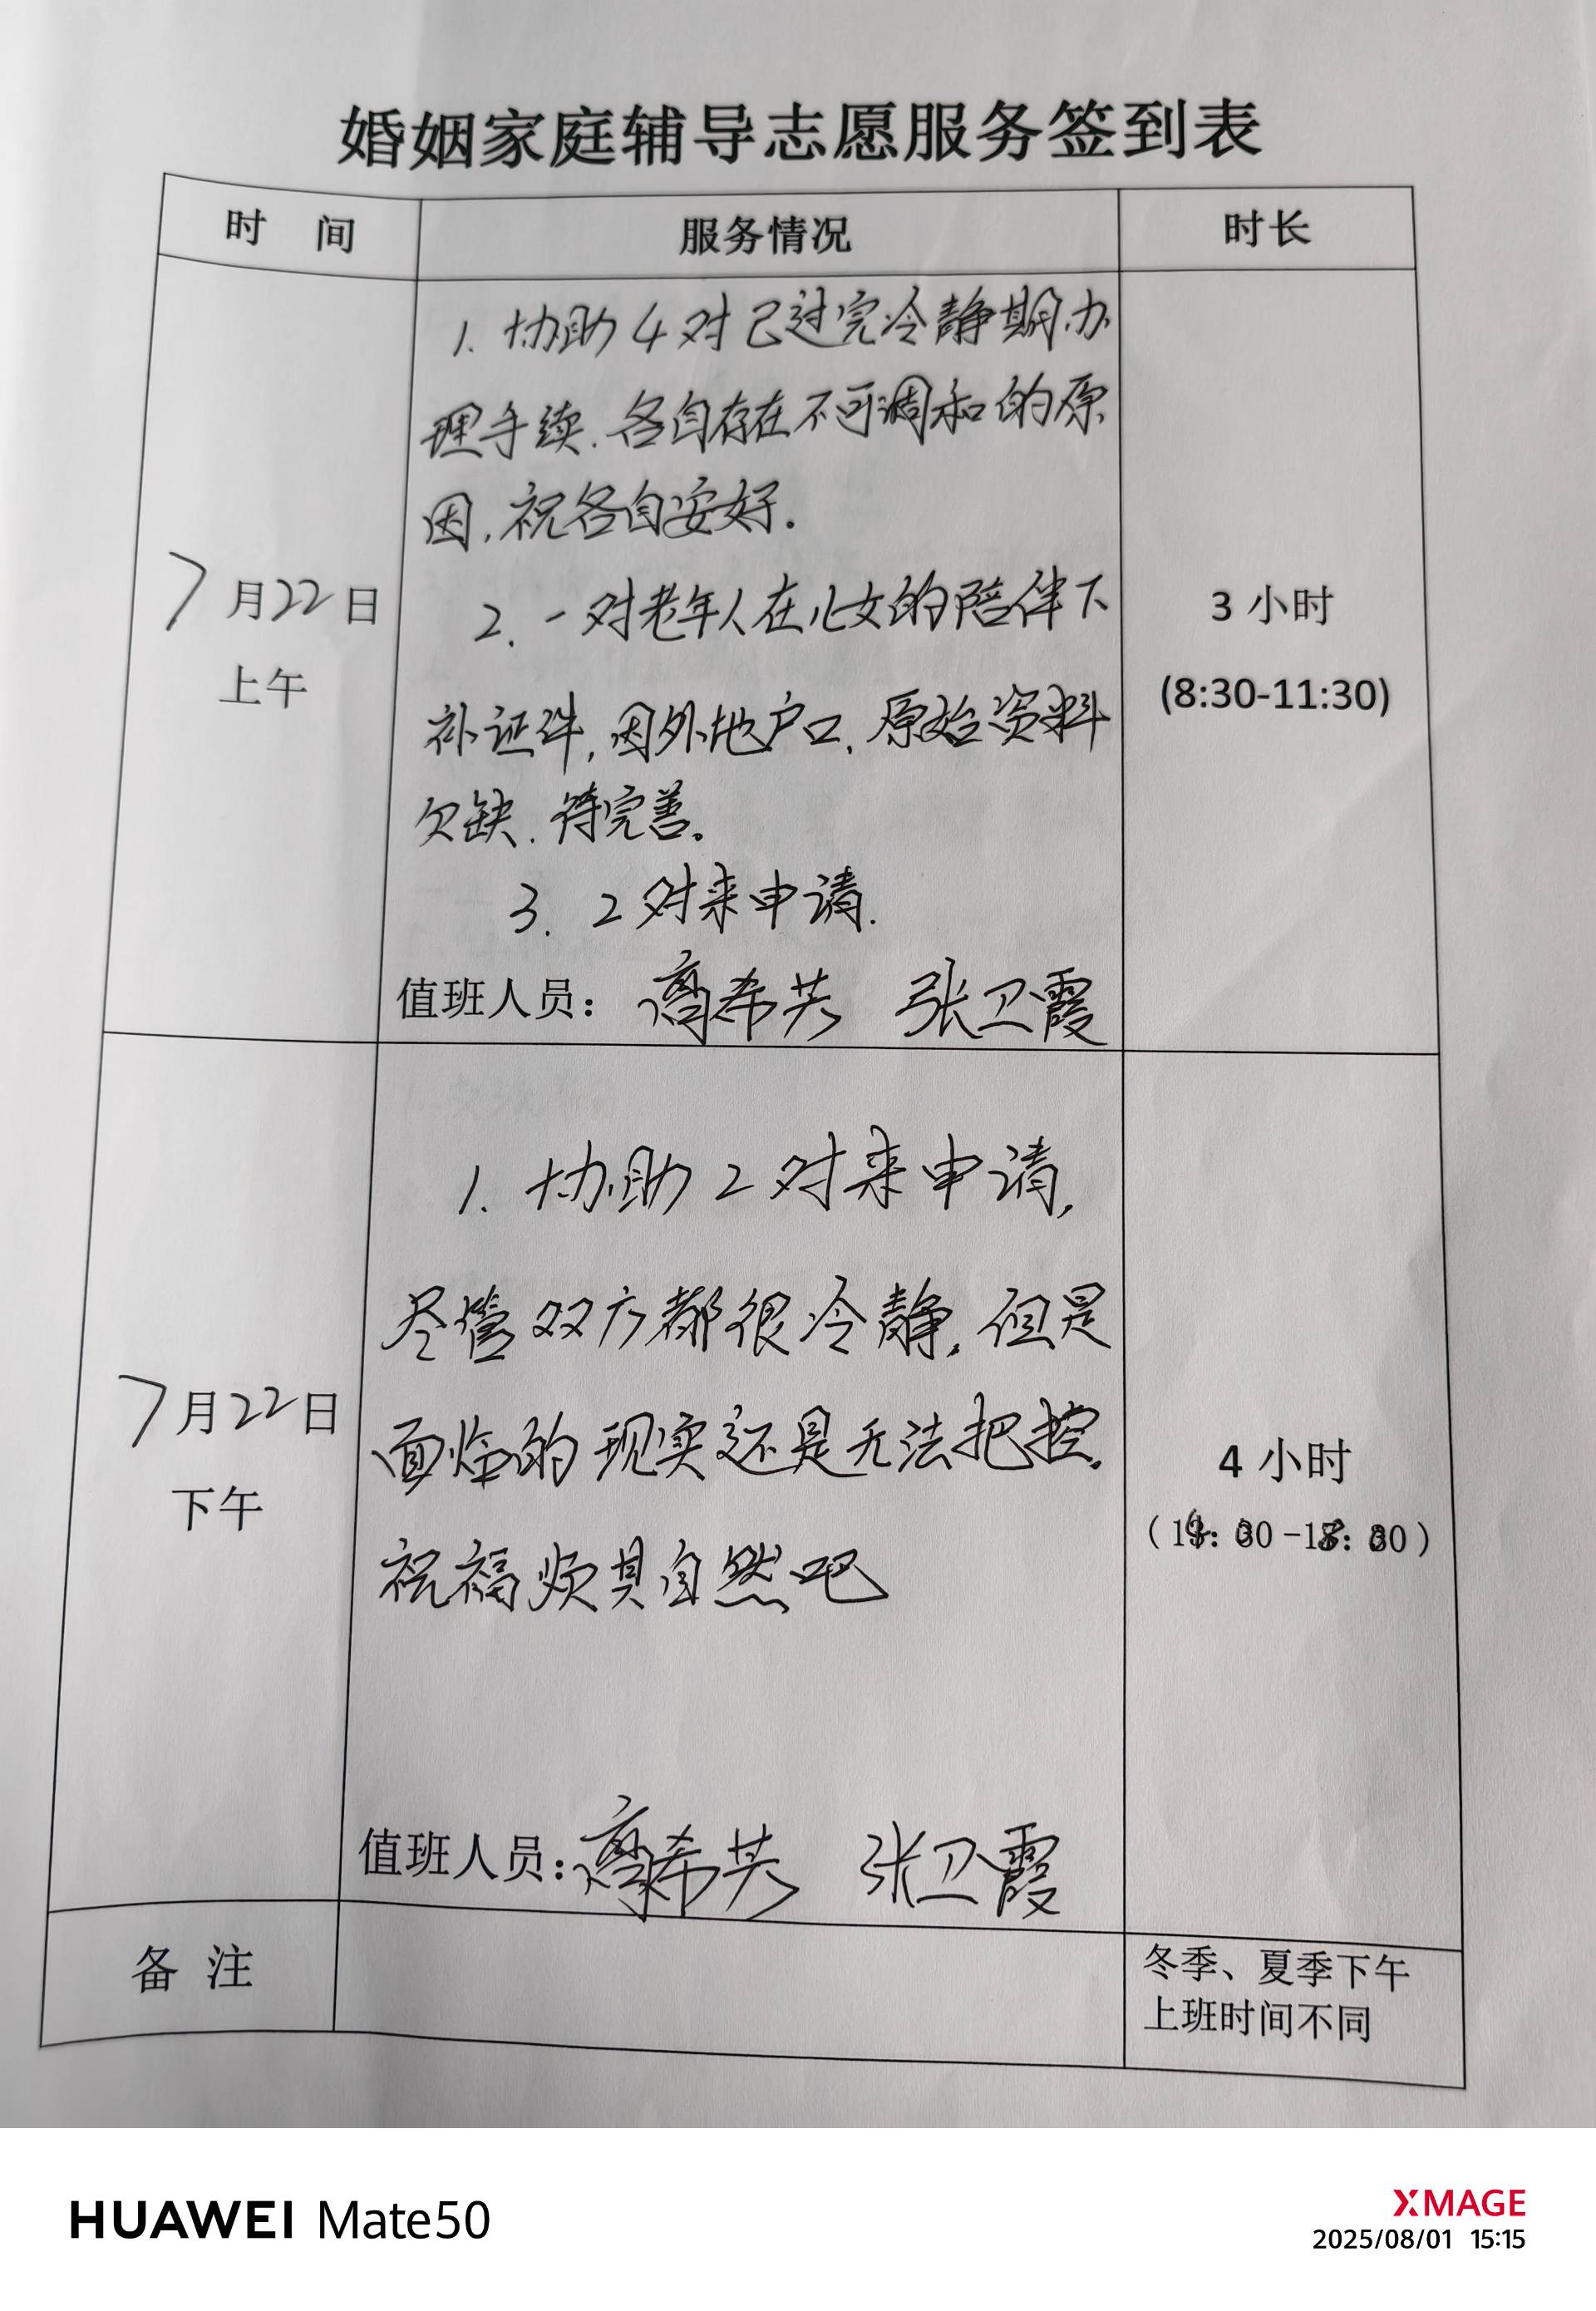 婚姻家庭辅导志愿服务签到表
时 间 服务情况 时长
7月22日
上午
1. 协助4对已过完冷静期办
理手续.各自存在不可调和的原
因,祝各自安好.
2. 一对老年人在儿女的陪伴下
补证件,因外地户口,原始资料
欠缺.待完善。
3. 2对来申请.
值班人员: 高希芙 张卫霞
3 小时
(8:30-11:30)
7月22日
下午
1. 协助2对来申请,
尽管双方都很冷静,但是
面临的现实还是无法把控.
祝福顺其自然吧
值班人员: 高希芙 张卫霞
4 小时
备 注
冬季、夏季下午
上班时间不同
HUAWEI Mate50
XMAGE
2025/08/01 15:15